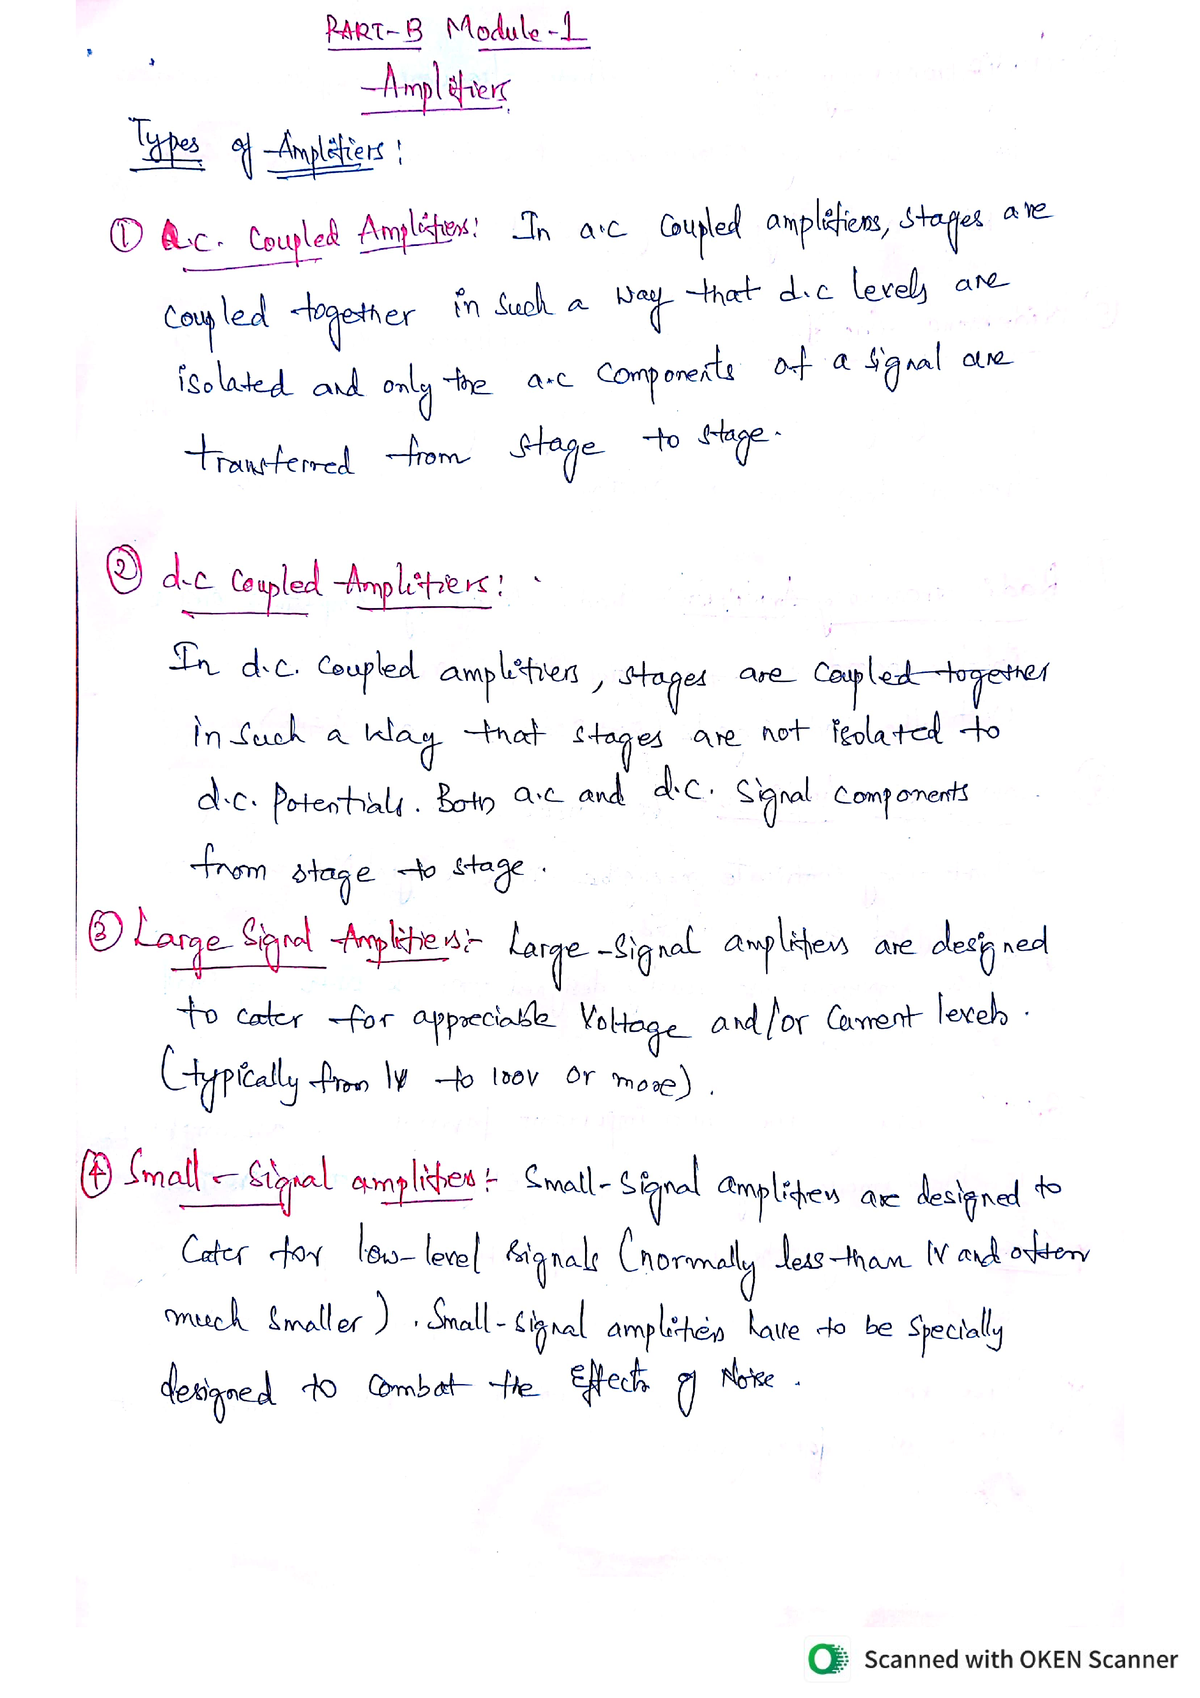 PART-B Module-1
Amplifiers
Types of Amplifiers:
① A.c. Coupled Amplifiers: In a.c Coupled amplifiers, stages are
coupled together in such a way that d.c levels are
isolated and only the a.c components of a signal are
transferred from stage to stage.
② d.c Coupled Amplifiers:
In d.c. Coupled amplifiers, stages are coupled together
in such a way that stages are not isolated to
d.c. potentials. Both a.c and d.c. signal components
from stage to stage.
③ Large Signal Amplifiers:- Large-signal amplifiers are designed
to cater for appreciable Voltage and/or Current levels.
(typically from 1V to 100V or more).
④ Small-Signal amplifiers:- Small-Signal amplifiers are designed to
Cater for low-level signals (normally less than 1V and often
much smaller). Small-signal amplifiers have to be specially
designed to combat the effects of Noise.
Scanned with OKEN Scanner